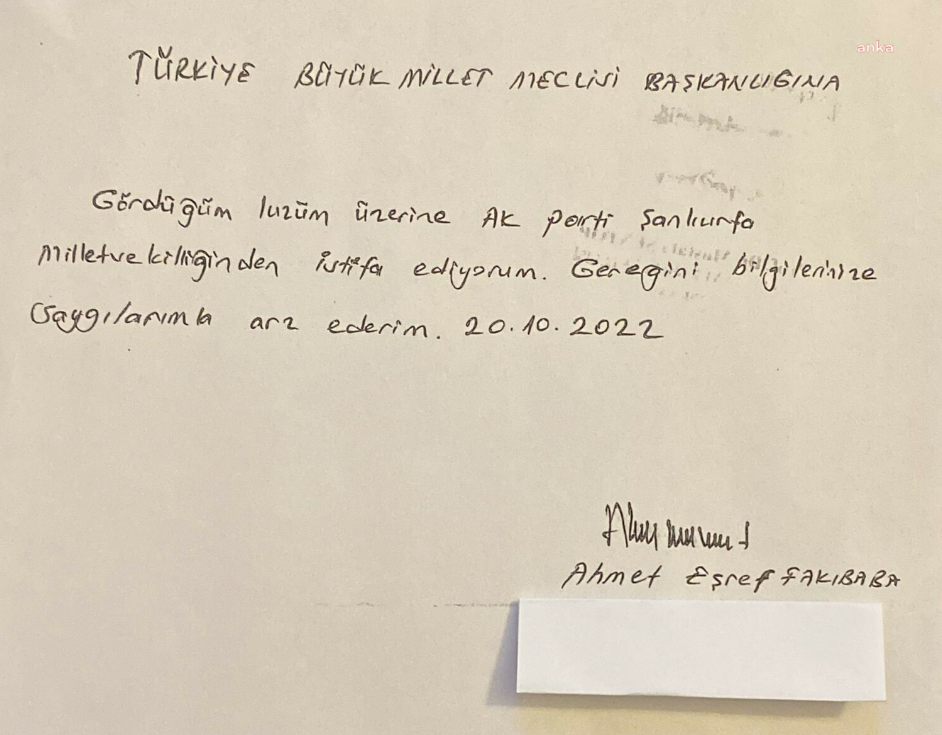 anka
TÜRKİYE BÜYÜK MİLLET MECLİSİ BAŞKANLIĞINA
Gördüğüm luzüm üzerine AK parti Şanlıurfa
Milletvekilliğinden istifa ediyorum. Gereğini bilgilerinize
saygılarımla arz ederim. 20.10.2022
Ahmet Eşref FAKIBABA